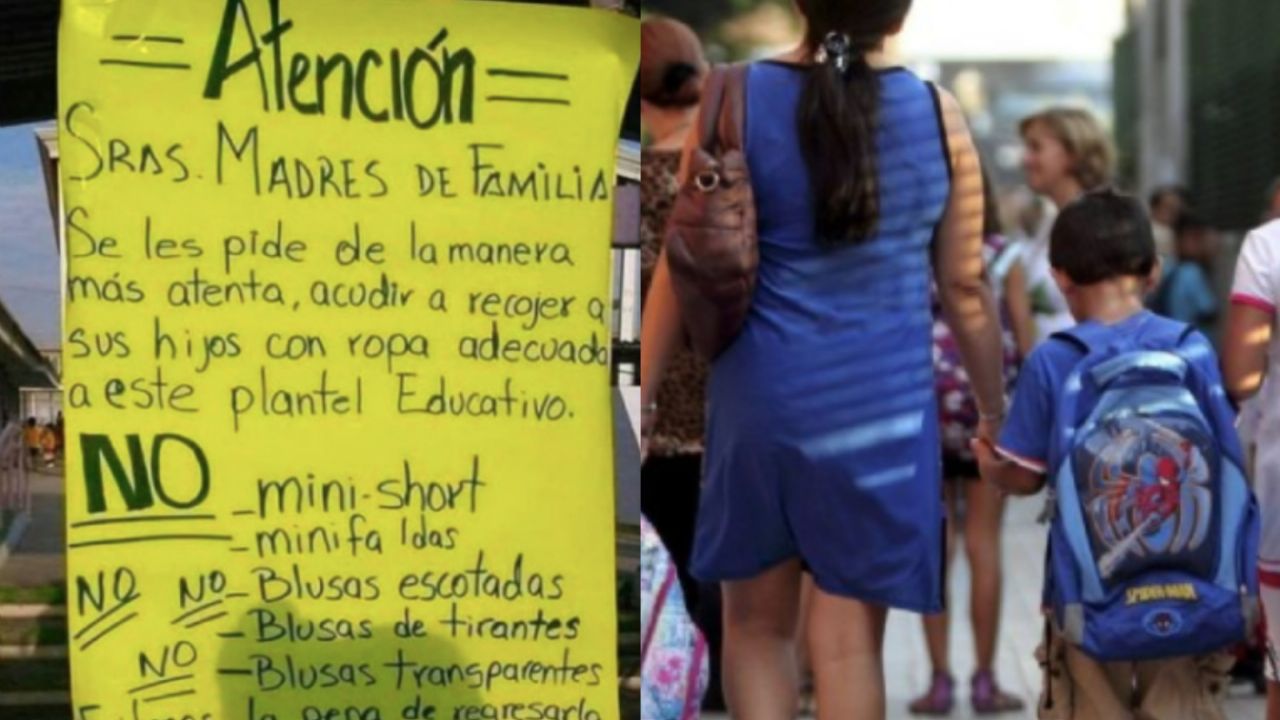 = Atención =
SRAS. MADRES DE FAMILIA
Se les pide de la manera
más atenta, acudir a recojer a
sus hijos con ropa adecuada
a este plantel Educativo.
NO - mini-short
- minifaldas
NO NO - Blusas escotadas
- Blusas de tirantes
NO - Blusas transparentes
la pena de regresarla
SPIDER-MAN